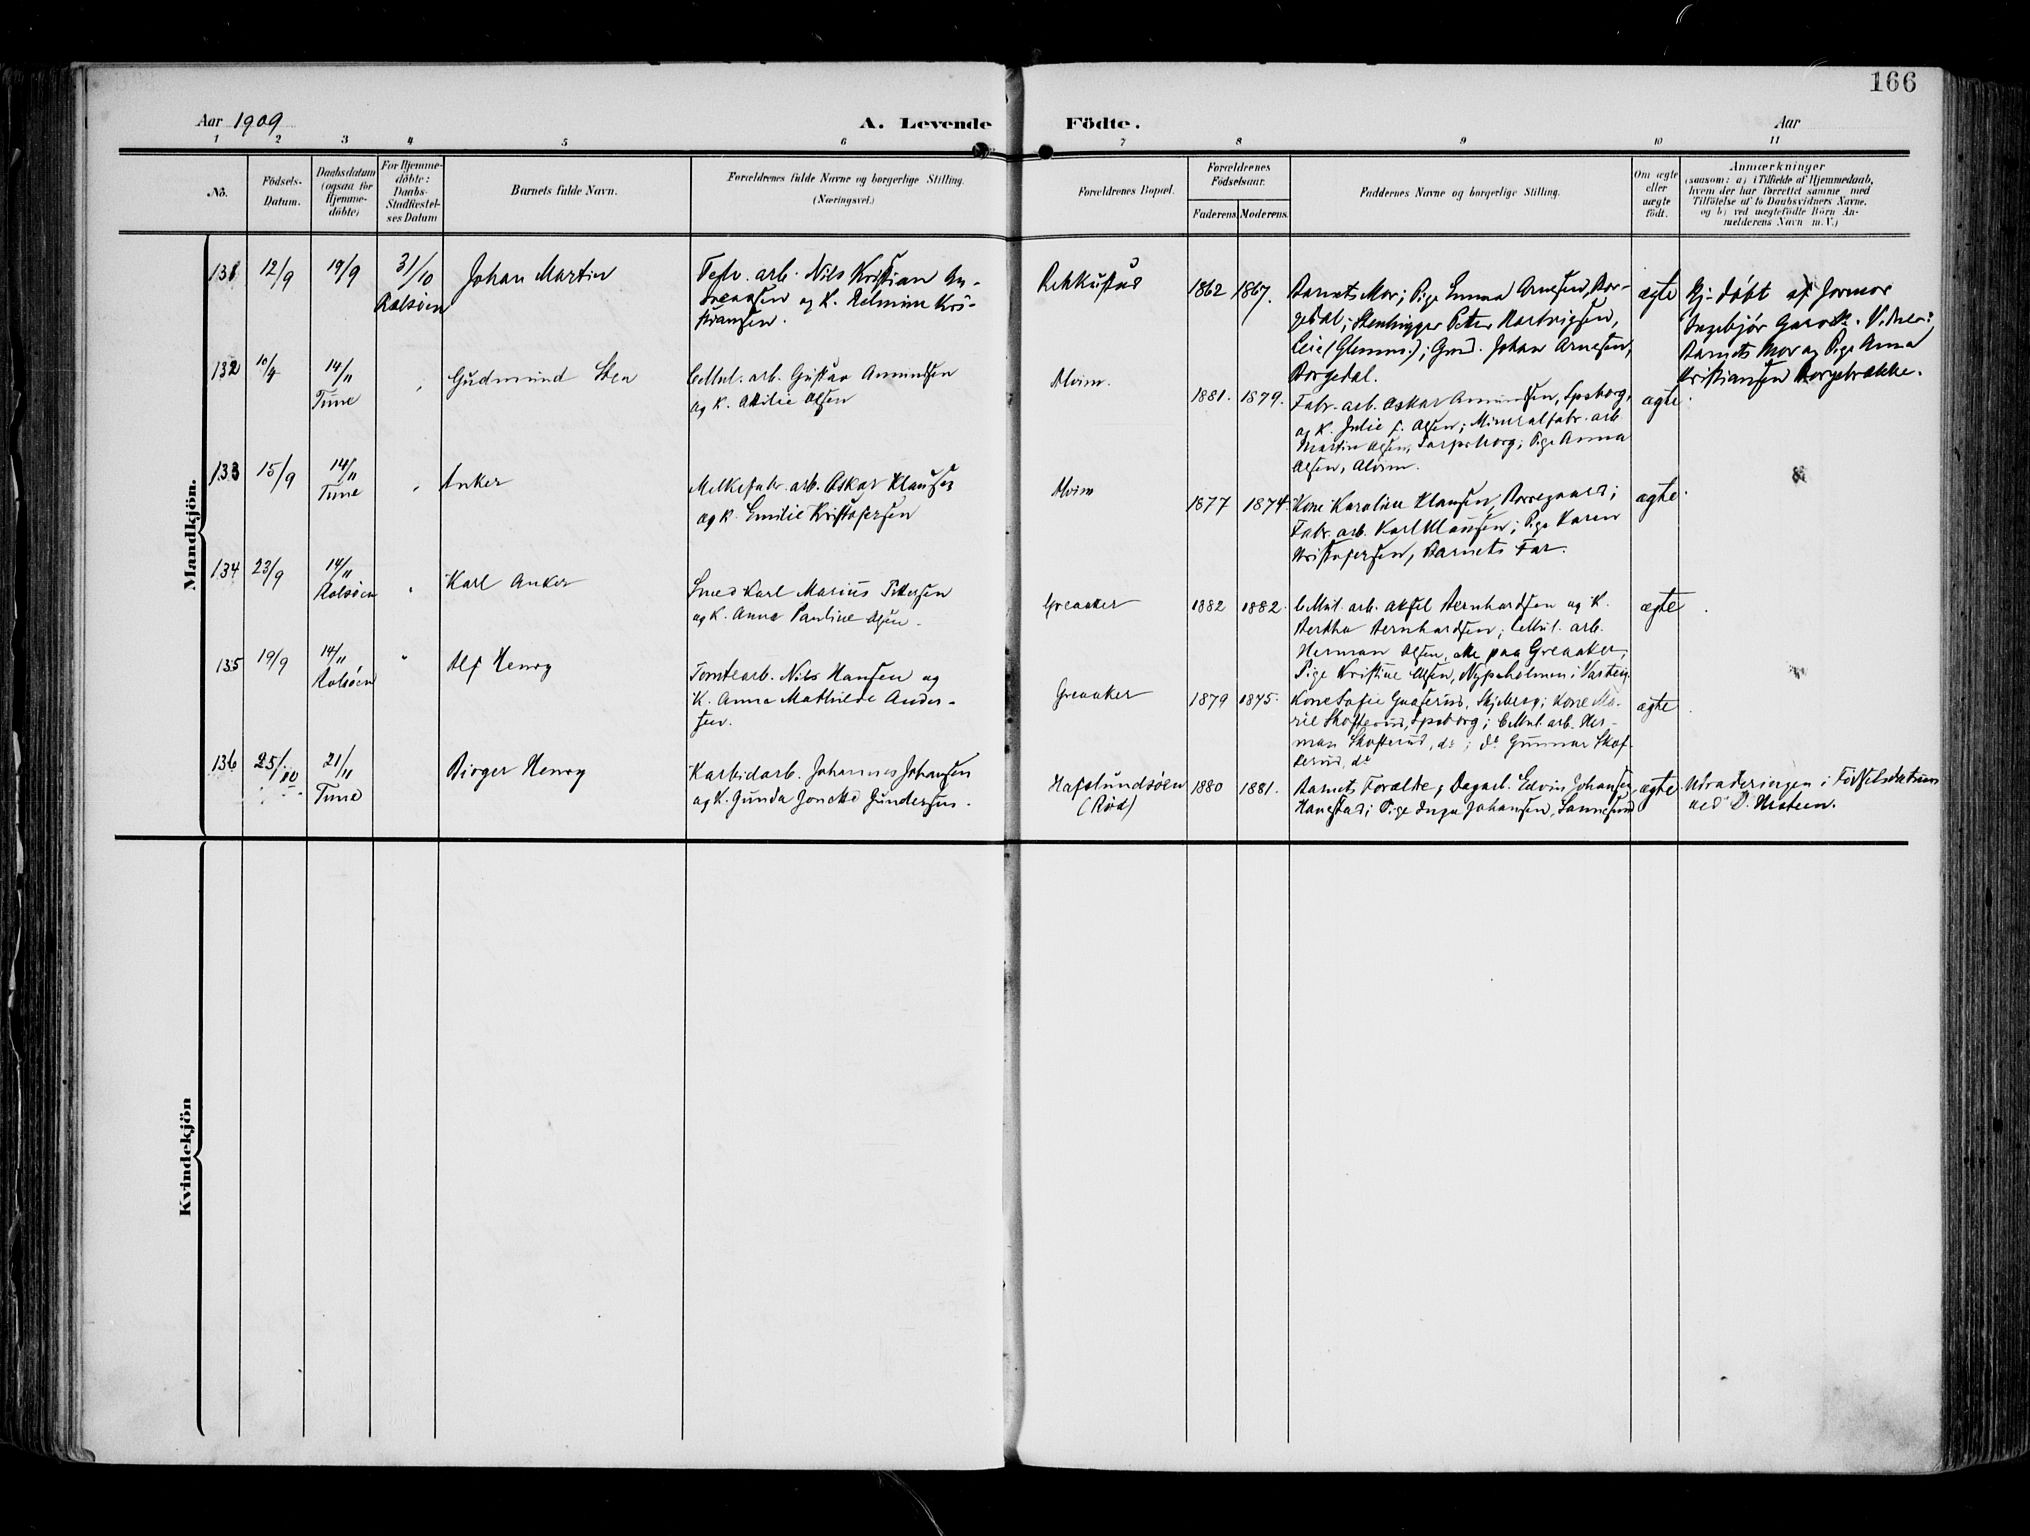 166
Aar 1909
A. Levende
Födte.
Aar
1 2 3 4 5 6 7 8 9 10 11
No.
Födsels-
Datum.
Daabsdatum
(ogsaa for
Hjemme-
døbte)
For Hjemme-
døbte:
Daabs-
Stadfæstel-
ses Datum
Barnets fulde Navn.
Forældrenes fulde Navne og borgerlige Stilling.
(Næringsvei.)
Forældrenes Bopæl.
Forældrenes
Födselsaar.
Faderens. Moderens.
Faddernes Navne og borgerlige Stilling.
Om ægte
eller
uægte
födt.
Anmærkninger
(saasom: a) i Tilfælde af Hjemmedaab,
hvem der har forrettet samme med
Tilföielse af to Daabsvidners Navne,
og b) ved uægtefødte Börn An-
melderens Navn m. V.)
Mandkjön.
131 12/9 19/9 31/10
Rolsøen
Johan Martin
arb. Nils Kristian An-
dreassen og K. Helmine Kri-
stiansen.
1862 1867.
Barnets Mor; Pige Emma Arnesen, Bor-
gedal; Stenhugger Peter Hartvigsen,
Leie (Glemm.); Grd. Johan Arnesen,
Borgedal.
ægte
Hj. døbt af Jormor
Ingebjør Vidner:
Barnets Mor og Pige Anna
Kristiansen Borgebrække.
132 14/11
Tune
Gudmund
Cellul. arb. Gustav Amundsen
og K. Otilie Olsen
Alvim.
1881. 1879.
Fabr. arb. Oskar Amundsen, Spsborg,
og K. Julie F. Olsen; Mineralfabr. arb.
Martin Olsen, Sarpsborg; Pige Anna
Olsen, Alvim.
ægte.
133 15/9 14/11
Tune
Anker
Melkefabr. arb. Oskar Klausen
og K. Emilie Kristofersen
Alvim
1877 1874.
Kone Karoline Klausen, Borregaard;
Fabr. arb. Karl Klausen; Pige Karen
Kristofersen, Barnets Far.
ægte.
134 23/9 14/11
Rolsøen
Karl Anker
Smed Karl Marius Pettersen
og K. Anna Pauline Olsen.
Greaaker
1882 1882.
Cellul. arb. Aksel Bernhardsen og K.
Bertha Bernhardsen; Cellul. arb.
Herman Olsen, alle paa Greaaker;
Pige Kristine Olsen, Nypeholmen i Varteig
ægte.
135 19/9 14/11
Rolsøen
Alf Henry
Tomtearb. Nils Hansen og
K. Anna Mathilde Ander-
sen.
Greaaker
1879 1875.
Kone Sofie Skjeberg; Kone Ma-
rie Skofterud, Spsborg; Cellul. arb. Her-
man Skofterud, do; do Gunnar Skof-
terud, do
ægte.
136 25/10 21/11
Tune
Birger Henry
Karbidarb. Johannes Johansen
og K. Gunda Gundersen.
Hafslundsøen
(Rød)
1880 1881.
Barnets Forældre; Dagarb. Edvin Johansen,
Hanestad; Pige Inga Johansen,
ægte.
Udraderingen i Fødselsdatum
ved
Kvindekjön